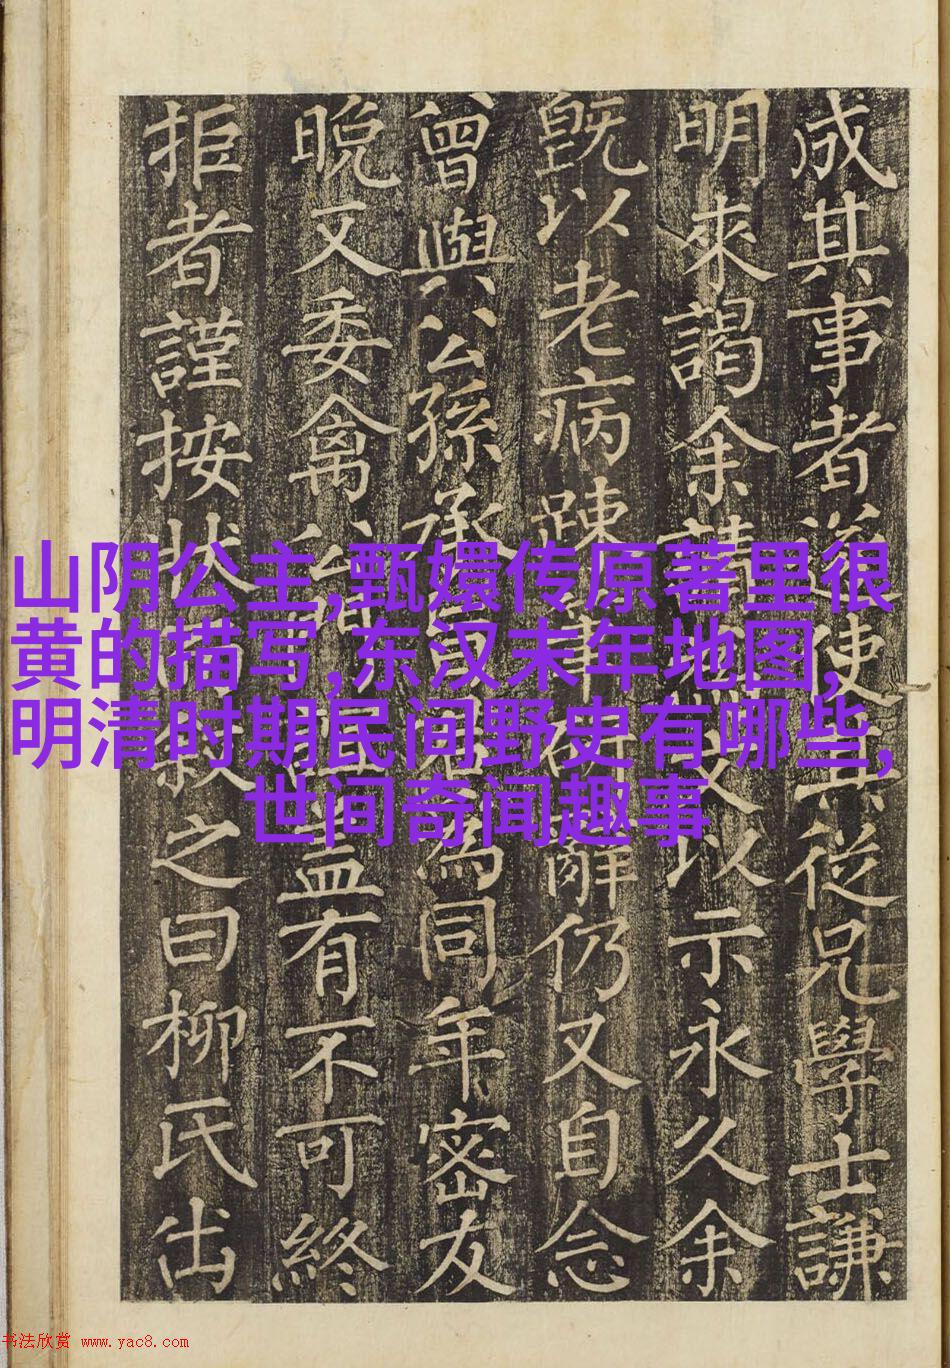 成其事者使其從兄學士謙
明來謁余請文以示永久余
既以老病踈辭仍又自念
曾與公孫承為同年密友
晚又委禽公益有不可終
拒者謹按狀叙之曰柳氏出
山阴公主,甄嬛传原著里很
黄的描写,东汉末年地图,
明清时期民间野史有哪些,
世间奇闻趣事
书法欣赏 www.yac8.com